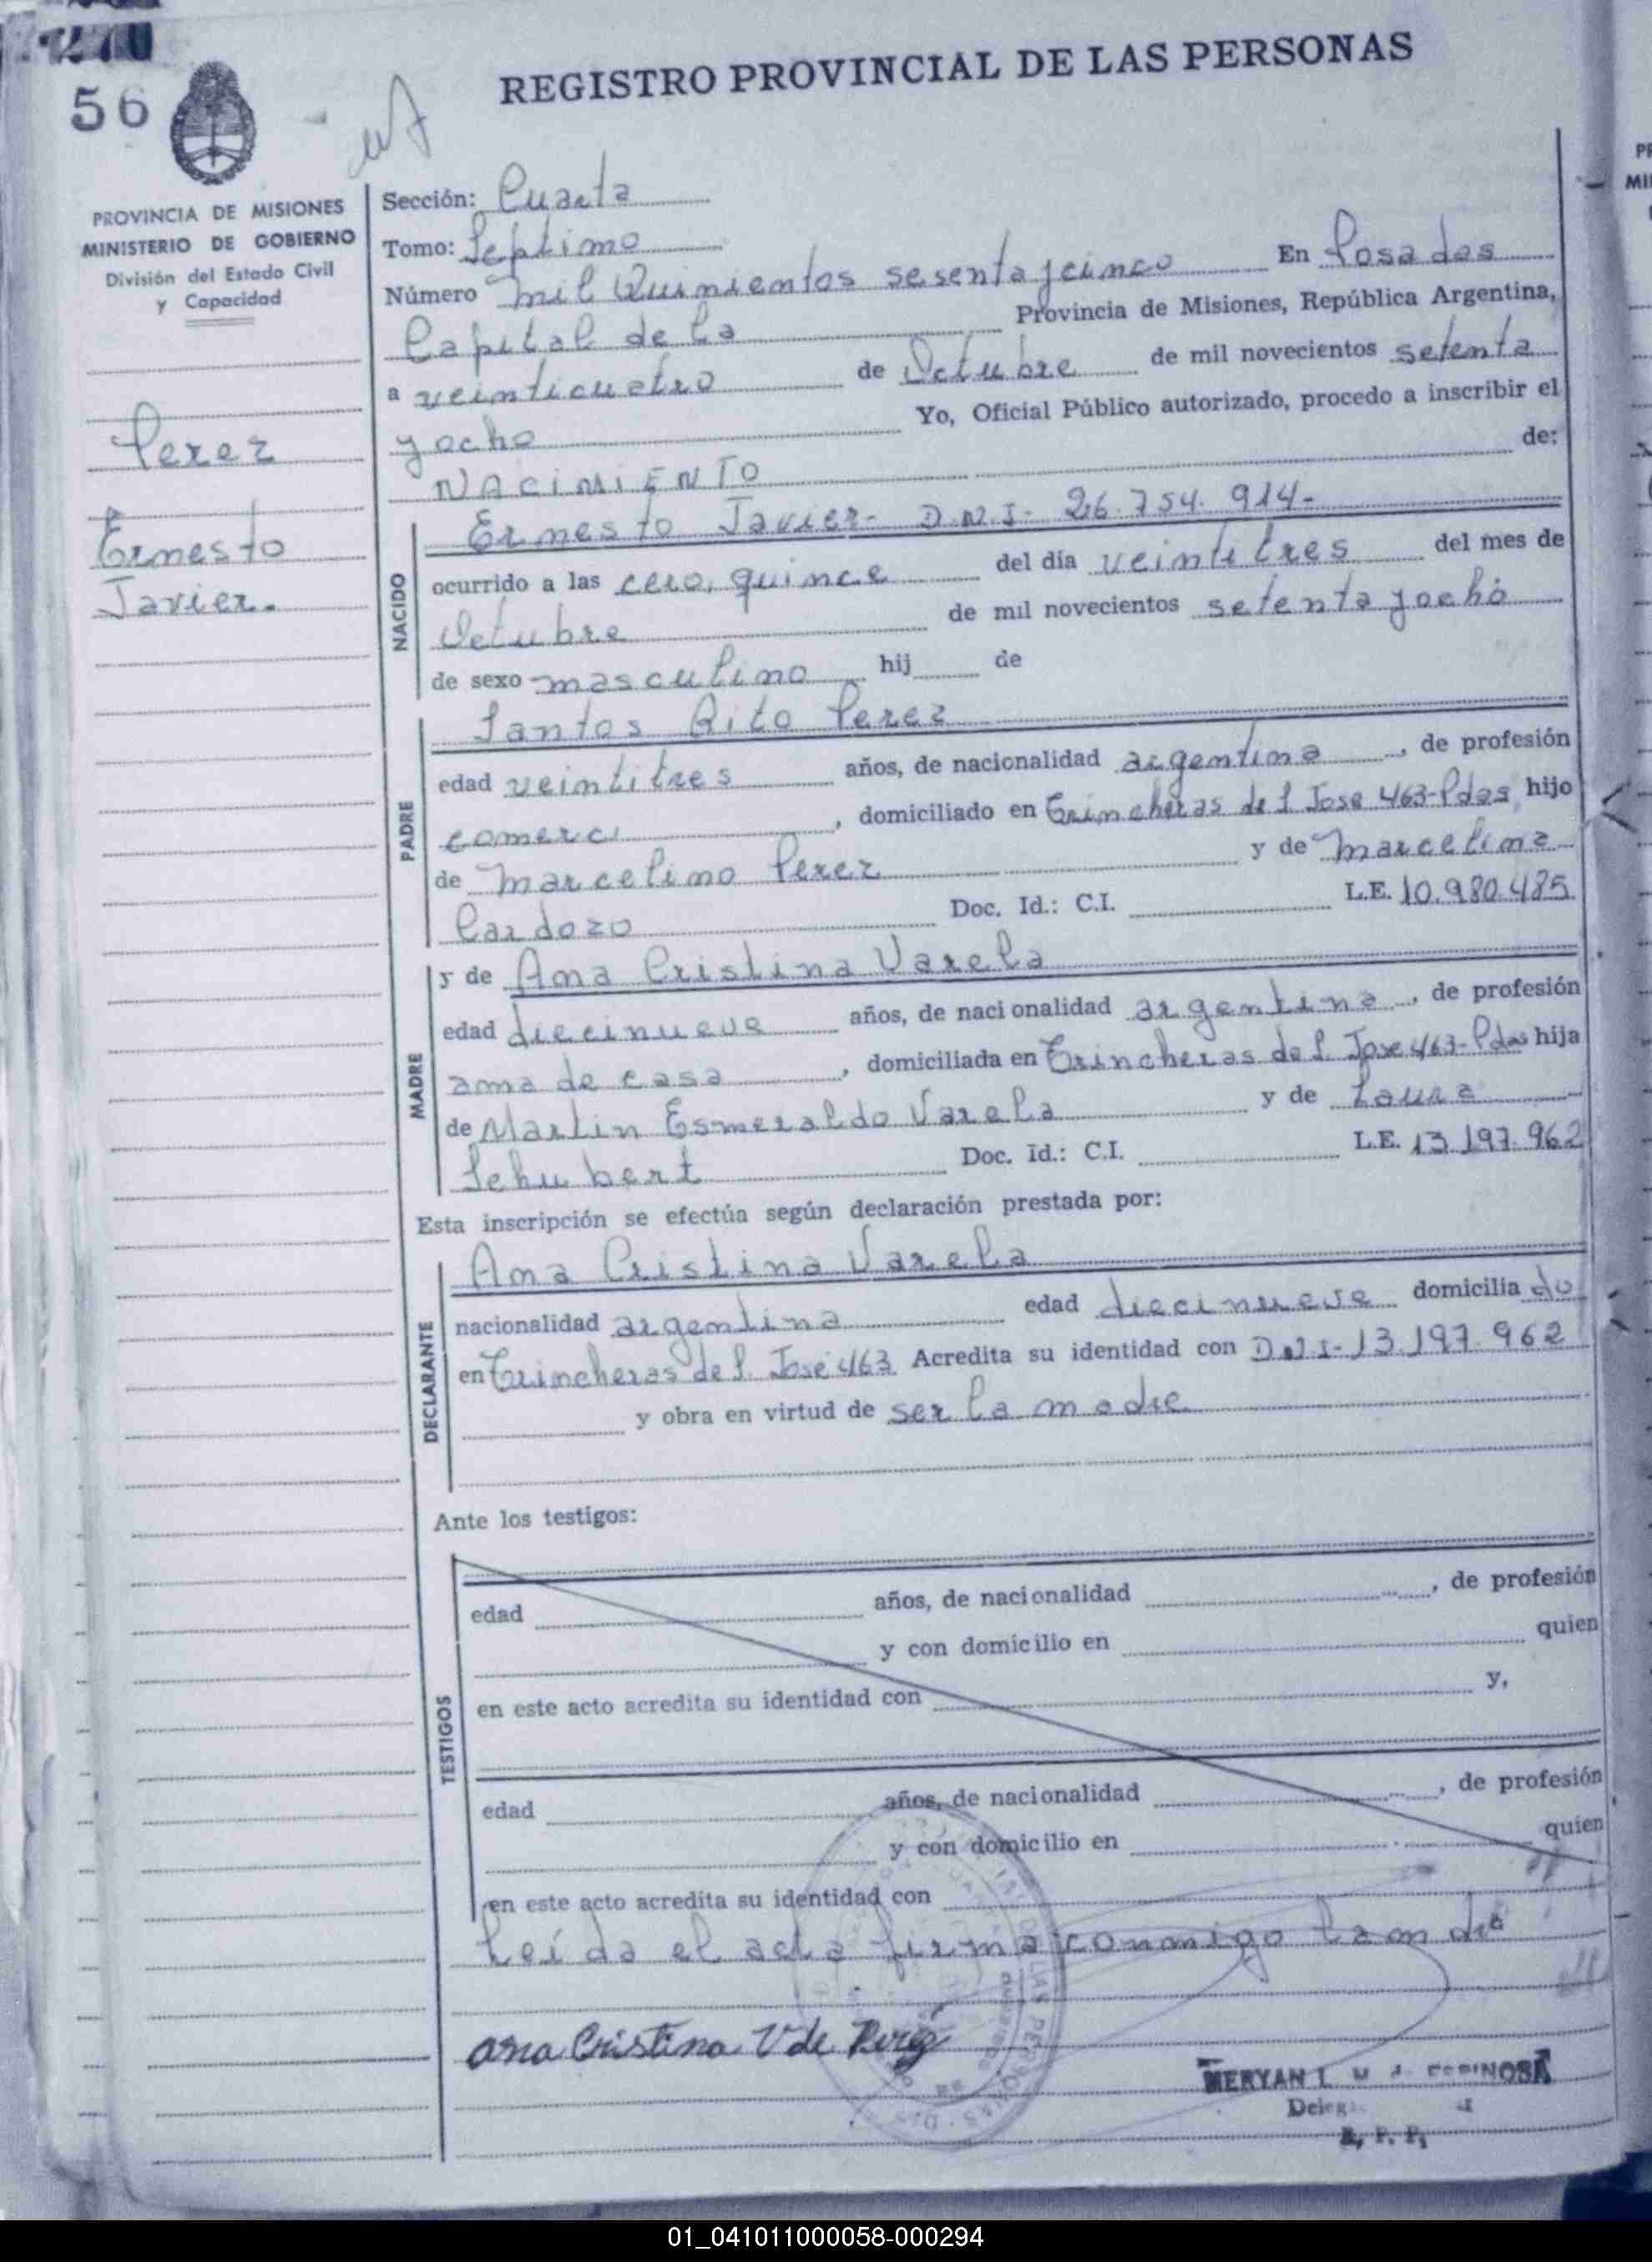 56
REGISTRO PROVINCIAL DE LAS PERSONAS
PROVINCIA DE MISIONES
MINISTERIO DE GOBIERNO
División del Estado Civil
y Capacidad
Perez
Ernesto
Javier.
Sección: Cuarta
Tomo: Septimo
Número mil Quinientos sesenta y cinco En Posadas
Capital de la Provincia de Misiones, República Argentina,
a veinticuatro de Octubre de mil novecientos setenta
y ocho Yo, Oficial Público autorizado, procedo a inscribir el
NACIMIENTO de:
NACIDO
Ernesto Javier- D.N.I- 26.754.914-
ocurrido a las cero, quince del día veintitres del mes de
Octubre de mil novecientos setenta y ocho
de sexo masculino hij de
PADRE
Santos Rito Perez
edad veintitres años, de nacionalidad argentina, de profesión
comerci, domiciliado en Trincheras de S Jose 463-Pdas hijo
de Marcelino Perez y de Marcelina
Cardozo Doc. Id.: C.I. L.E. 10.980.485
MADRE
y de Ana Cristina Varela
edad diecinueve años, de nacionalidad argentina, de profesión
ama de casa, domiciliada en Trincheras de S. Jose 463-Pdas hija
de Martin Esmeraldo Varela y de Laura
Schubert Doc. Id.: C.I. L.E. 13.197.962
Esta inscripción se efectúa según declaración prestada por:
DECLARANTE
Ana Cristina Varela
nacionalidad argentina edad diecinueve domicilia do
en Trincheras de S. José 463 Acredita su identidad con D.N.I- 13.197.962
y obra en virtud de ser la madre
Ante los testigos:
TESTIGOS
edad años, de nacionalidad , de profesión
y con domicilio en quien
en este acto acredita su identidad con y,
edad años, de nacionalidad , de profesión
y con domicilio en quien
en este acto acredita su identidad con
Leída el acta firma conmigo la
Ana Cristina V de Perez
MERYAN ESPINOSA
R. P. P.
01_041011000058-000294